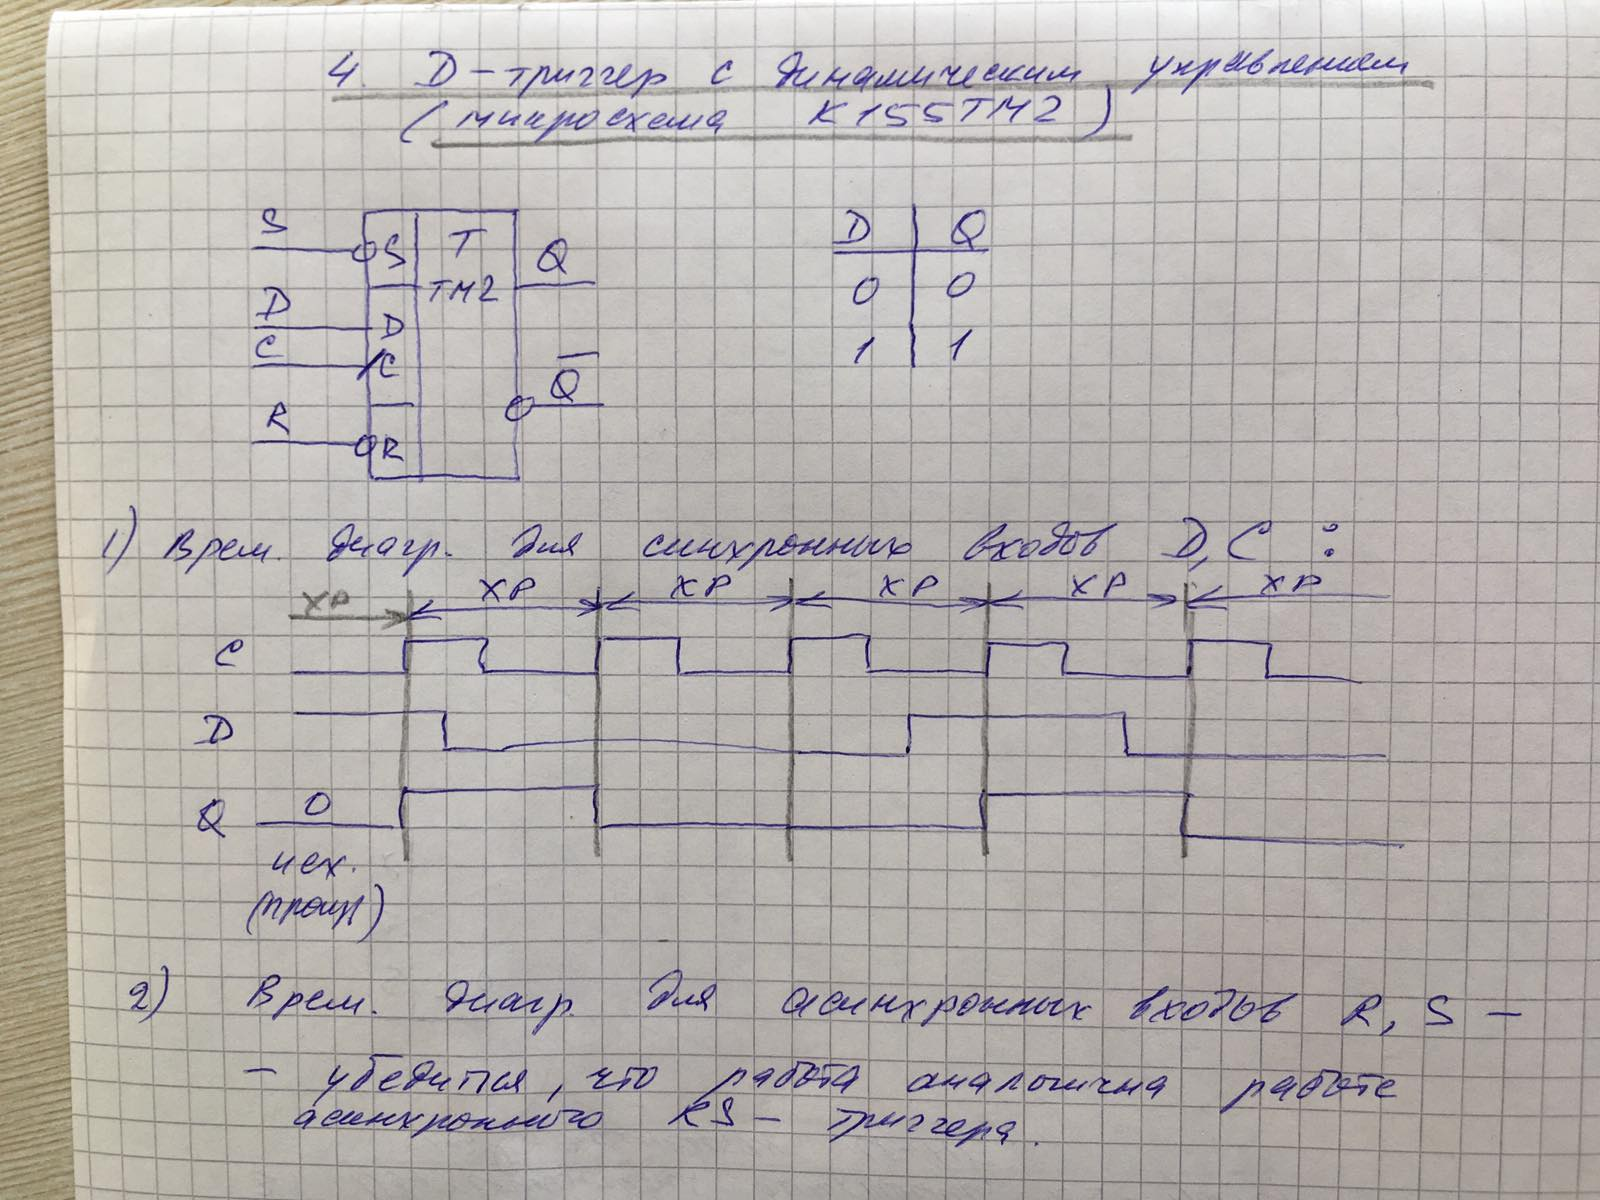 4. D-триггер с динамическим управлением
(микросхема К155ТМ2)
S S T Q
D D ТМ2
C C Q̅
R R
D Q
0 0
1 1
1) Врем. диагр. для синхронных входов D, C :
ХР ХР ХР ХР ХР ХР
C
D
Q 0
исх.
(прош)
2) Врем. диагр. для асинхронных входов R, S –
– убедиться, что работа аналогична работе
асинхронного RS – триггера.